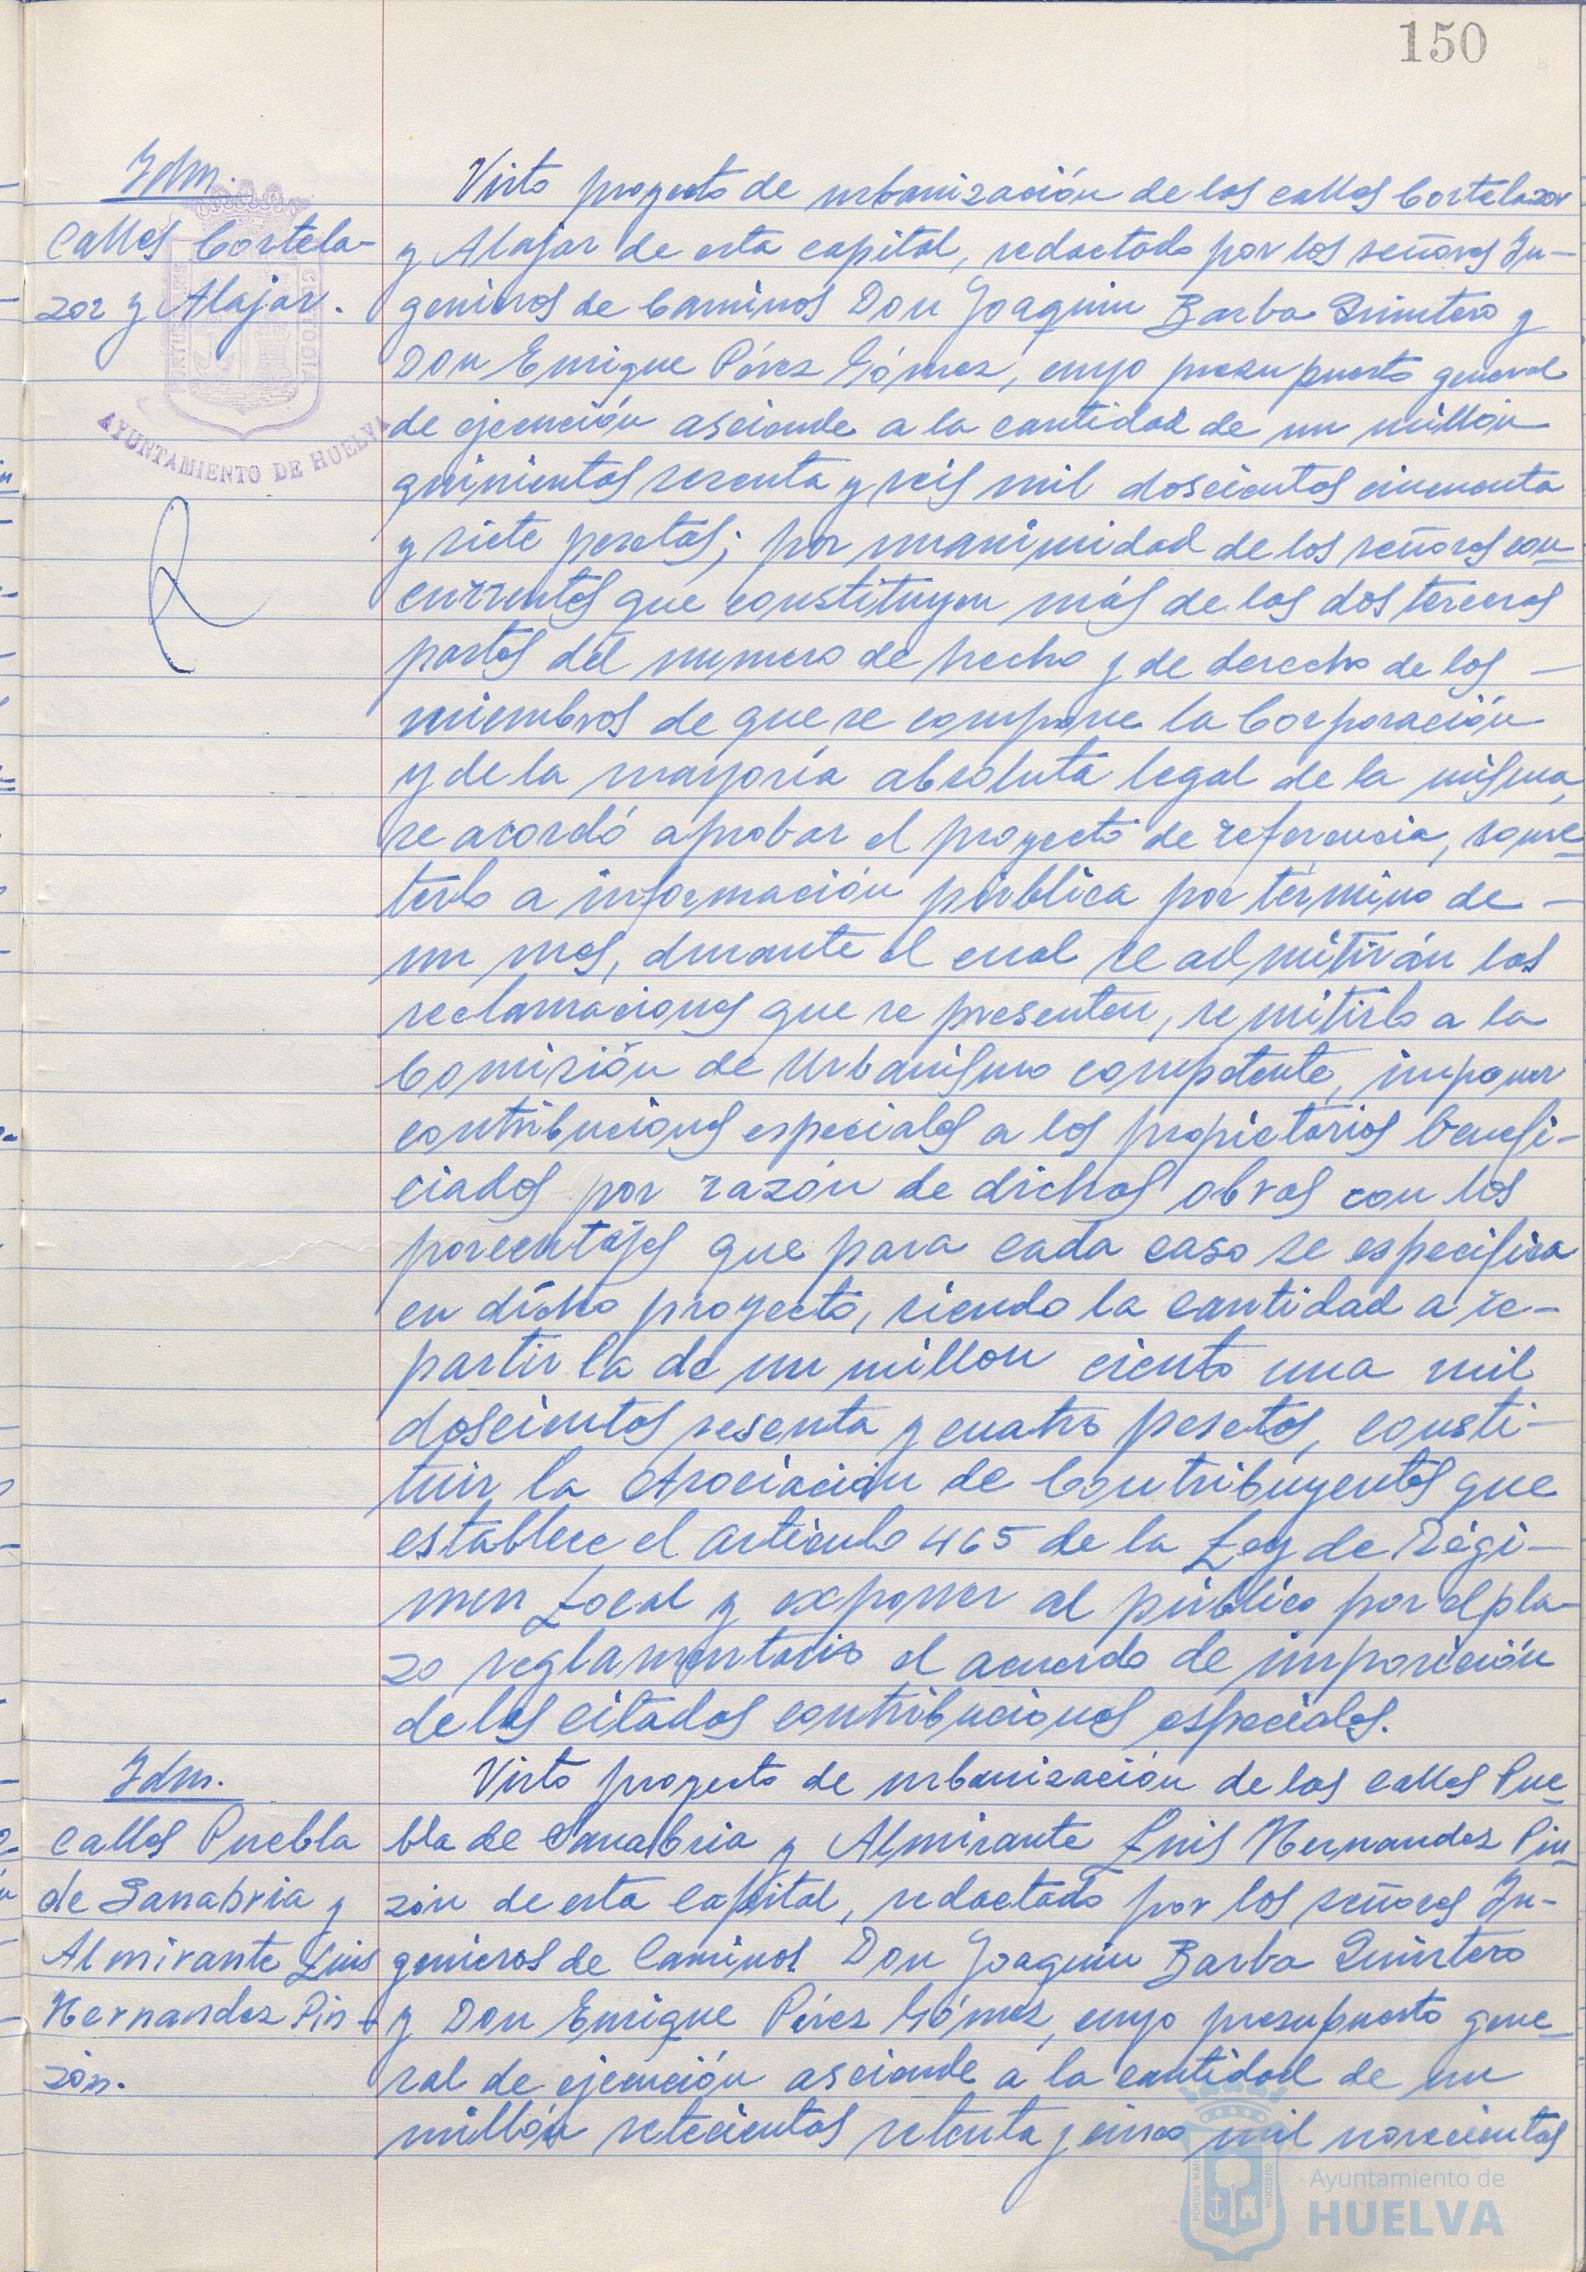 150
Idm.
Calles Cortela-
zor y Alajar.
PORTUS MARIS
CUSTODIA
AYUNTAMIENTO DE HUELVA
Visto proyecto de urbanización de las calles Cortelazor
y Alajar de esta capital, redactado por los señores In-
genieros de Caminos Don Joaquin Barba Quintero y
Don Enrique Pérez Gómez, cuyo presupuesto general
de ejecución asciende a la cantidad de un millón
quinientas sesenta y seis mil doscientas cincuenta
y siete pesetas; por unanimidad de los señores con-
currentes que constituyen más de las dos terceras
partes del numero de hecho y de derecho de los —
miembros de que se compone la Corporación
y de la mayoría absoluta legal de la misma,
se acordó aprobar el proyecto de referencia, some-
terlo a información pública por término de —
un mes, durante el cual se admitirán las
reclamaciones que se presenten, remitirlo a la
Comisión de Urbanismo competente, imponer
contribuciones especiales a los propietarios benefi-
ciados por razón de dichas obras con los
porcentajes que para cada caso se especifica
en dicho proyecto, siendo la cantidad a re-
partir la de un millon ciento una mil
doscientas sesenta y cuatro pesetas, consti-
tuir la Asociación de Contribuyentes que
establece el artículo 465 de la Ley de Régi-
men Local y exponer al público por el pla-
zo reglamentario el acuerdo de imposición
de las citadas contribuciones especiales.
Idm.
Calles Puebla
de Sanabria y
Almirante Luis
Hernandez Pin-
zón.
Visto proyecto de urbanización de las calles Pue-
bla de Sanabria y Almirante Luis Hernandez Pin-
zón de esta capital, redactado por los señores In-
genieros de Caminos Don Joaquin Barba Quintero
y Don Enrique Pérez Gómez, cuyo presupuesto gene-
ral de ejecución asciende a la cantidad de un
millón setecientas setenta y cinco mil novecientas
Ayuntamiento de
HUELVA